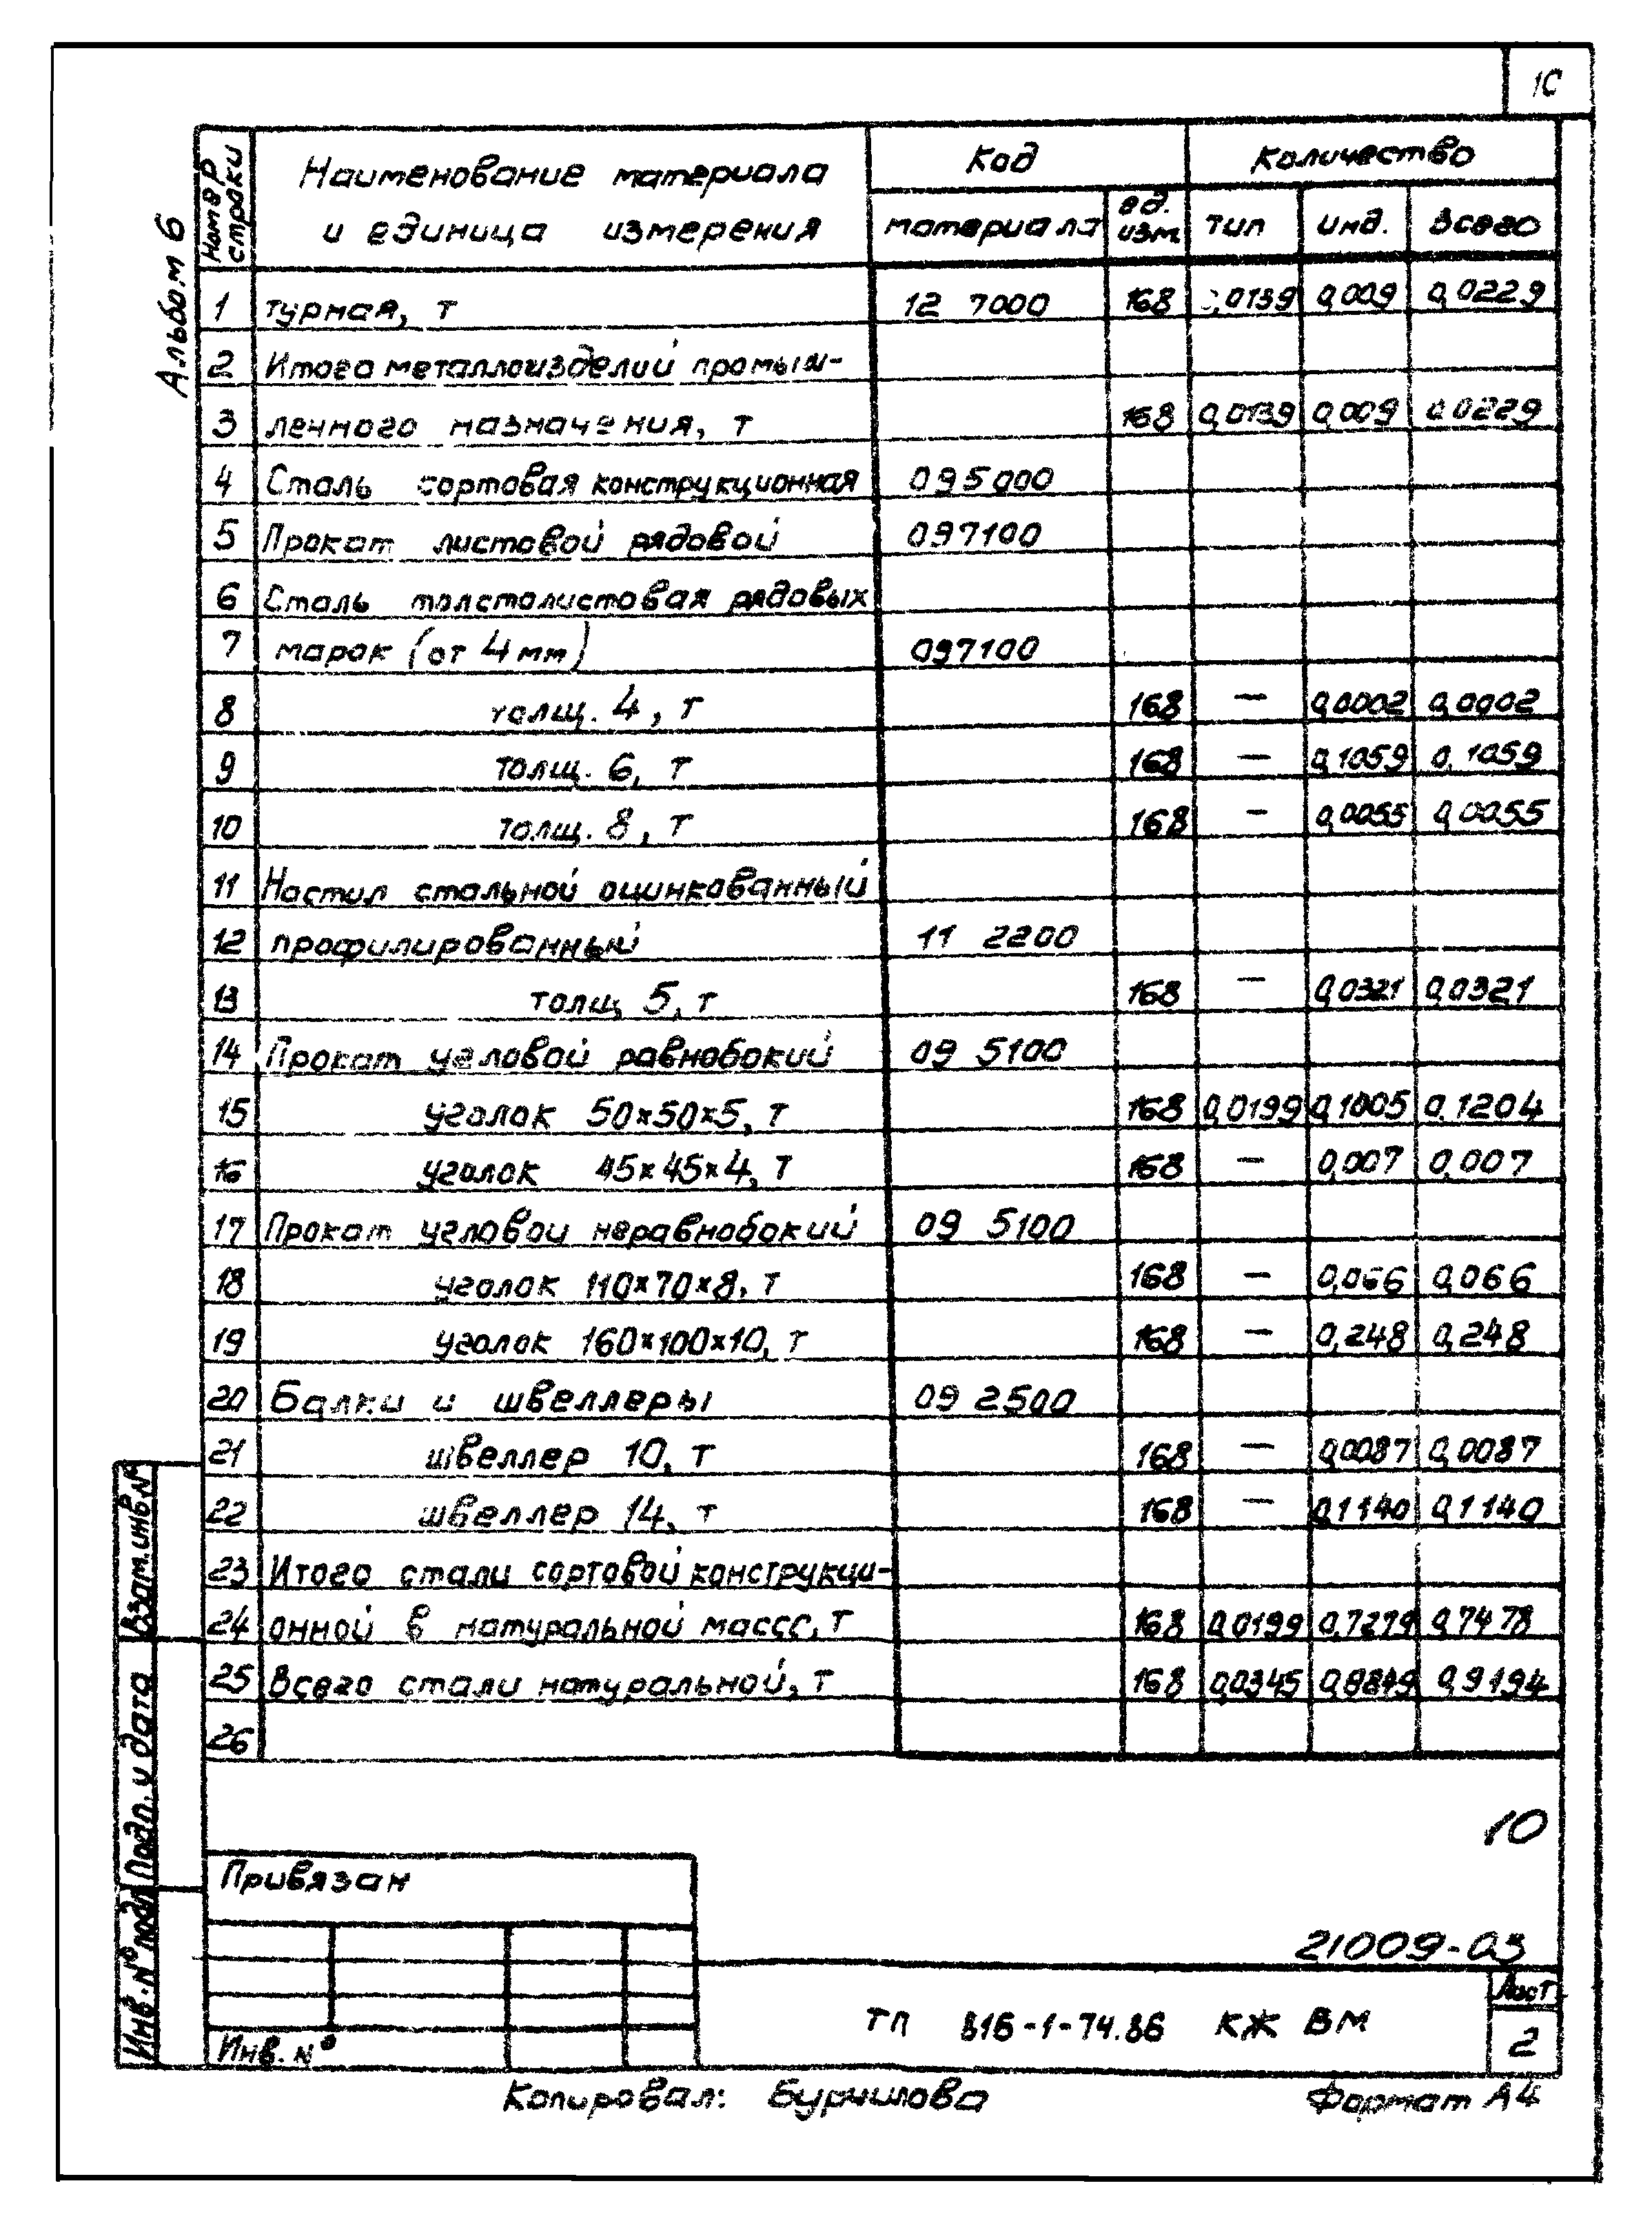 10
Альбом 6
Номер строки | Наименование материала и единица измерения | Код | Количество
материала | ед. изм. | тип | инд. | всего
1 | турная, т | 12 7000 | 168 | 0,0139 | 0,009 | 0,0229
2 | Итого металлоизделий промыш-
3 | ленного назначения, т | 168 | 0,0139 | 0,009 | 0,0229
4 | Сталь сортовая конструкционная | 095000
5 | Прокат листовой рядовой | 097100
6 | Сталь толстолистовая рядовых
7 | марок (от 4 мм) | 097100
8 | толщ. 4, т | 168 | — | 0,0002 | 0,0002
9 | толщ. 6, т | 168 | — | 0,1059 | 0,1059
10 | толщ. 8, т | 168 | — | 0,0055 | 0,0055
11 | Настил стальной оцинкованный
12 | профилированный | 11 2200
13 | толщ 5, т | 168 | — | 0,0321 | 0,0321
14 | Прокат угловой равнобокий | 09 5100
15 | уголок 50×50×5, т | 168 | 0,0199 | 0,1005 | 0,1204
16 | уголок 45×45×4, т | 168 | — | 0,007 | 0,007
17 | Прокат угловой неравнобокий | 09 5100
18 | уголок 110×70×8, т | 168 | — | 0,066 | 0,066
19 | уголок 160×100×10, т | 168 | — | 0,248 | 0,248
20 | Балки и швеллеры | 09 2500
21 | швеллер 10, т | 168 | — | 0,0087 | 0,0087
22 | швеллер 14, т | 168 | — | 0,1140 | 0,1140
23 | Итого стали сортовой конструкци-
24 | онной в натуральной массе, т | 168 | 0,0199 | 0,7279 | 0,7478
25 | Всего стали натуральной, т | 168 | 0,0345 | 0,8849 | 0,9194
26
Взам. инв. №
Подп. и дата
Инв. № подл
10
Привязан
Инв. №
21009-03
ТП 816-1-74.86 КЖ ВМ
Лист
2
Копировал: Бурмилова
Формат А4